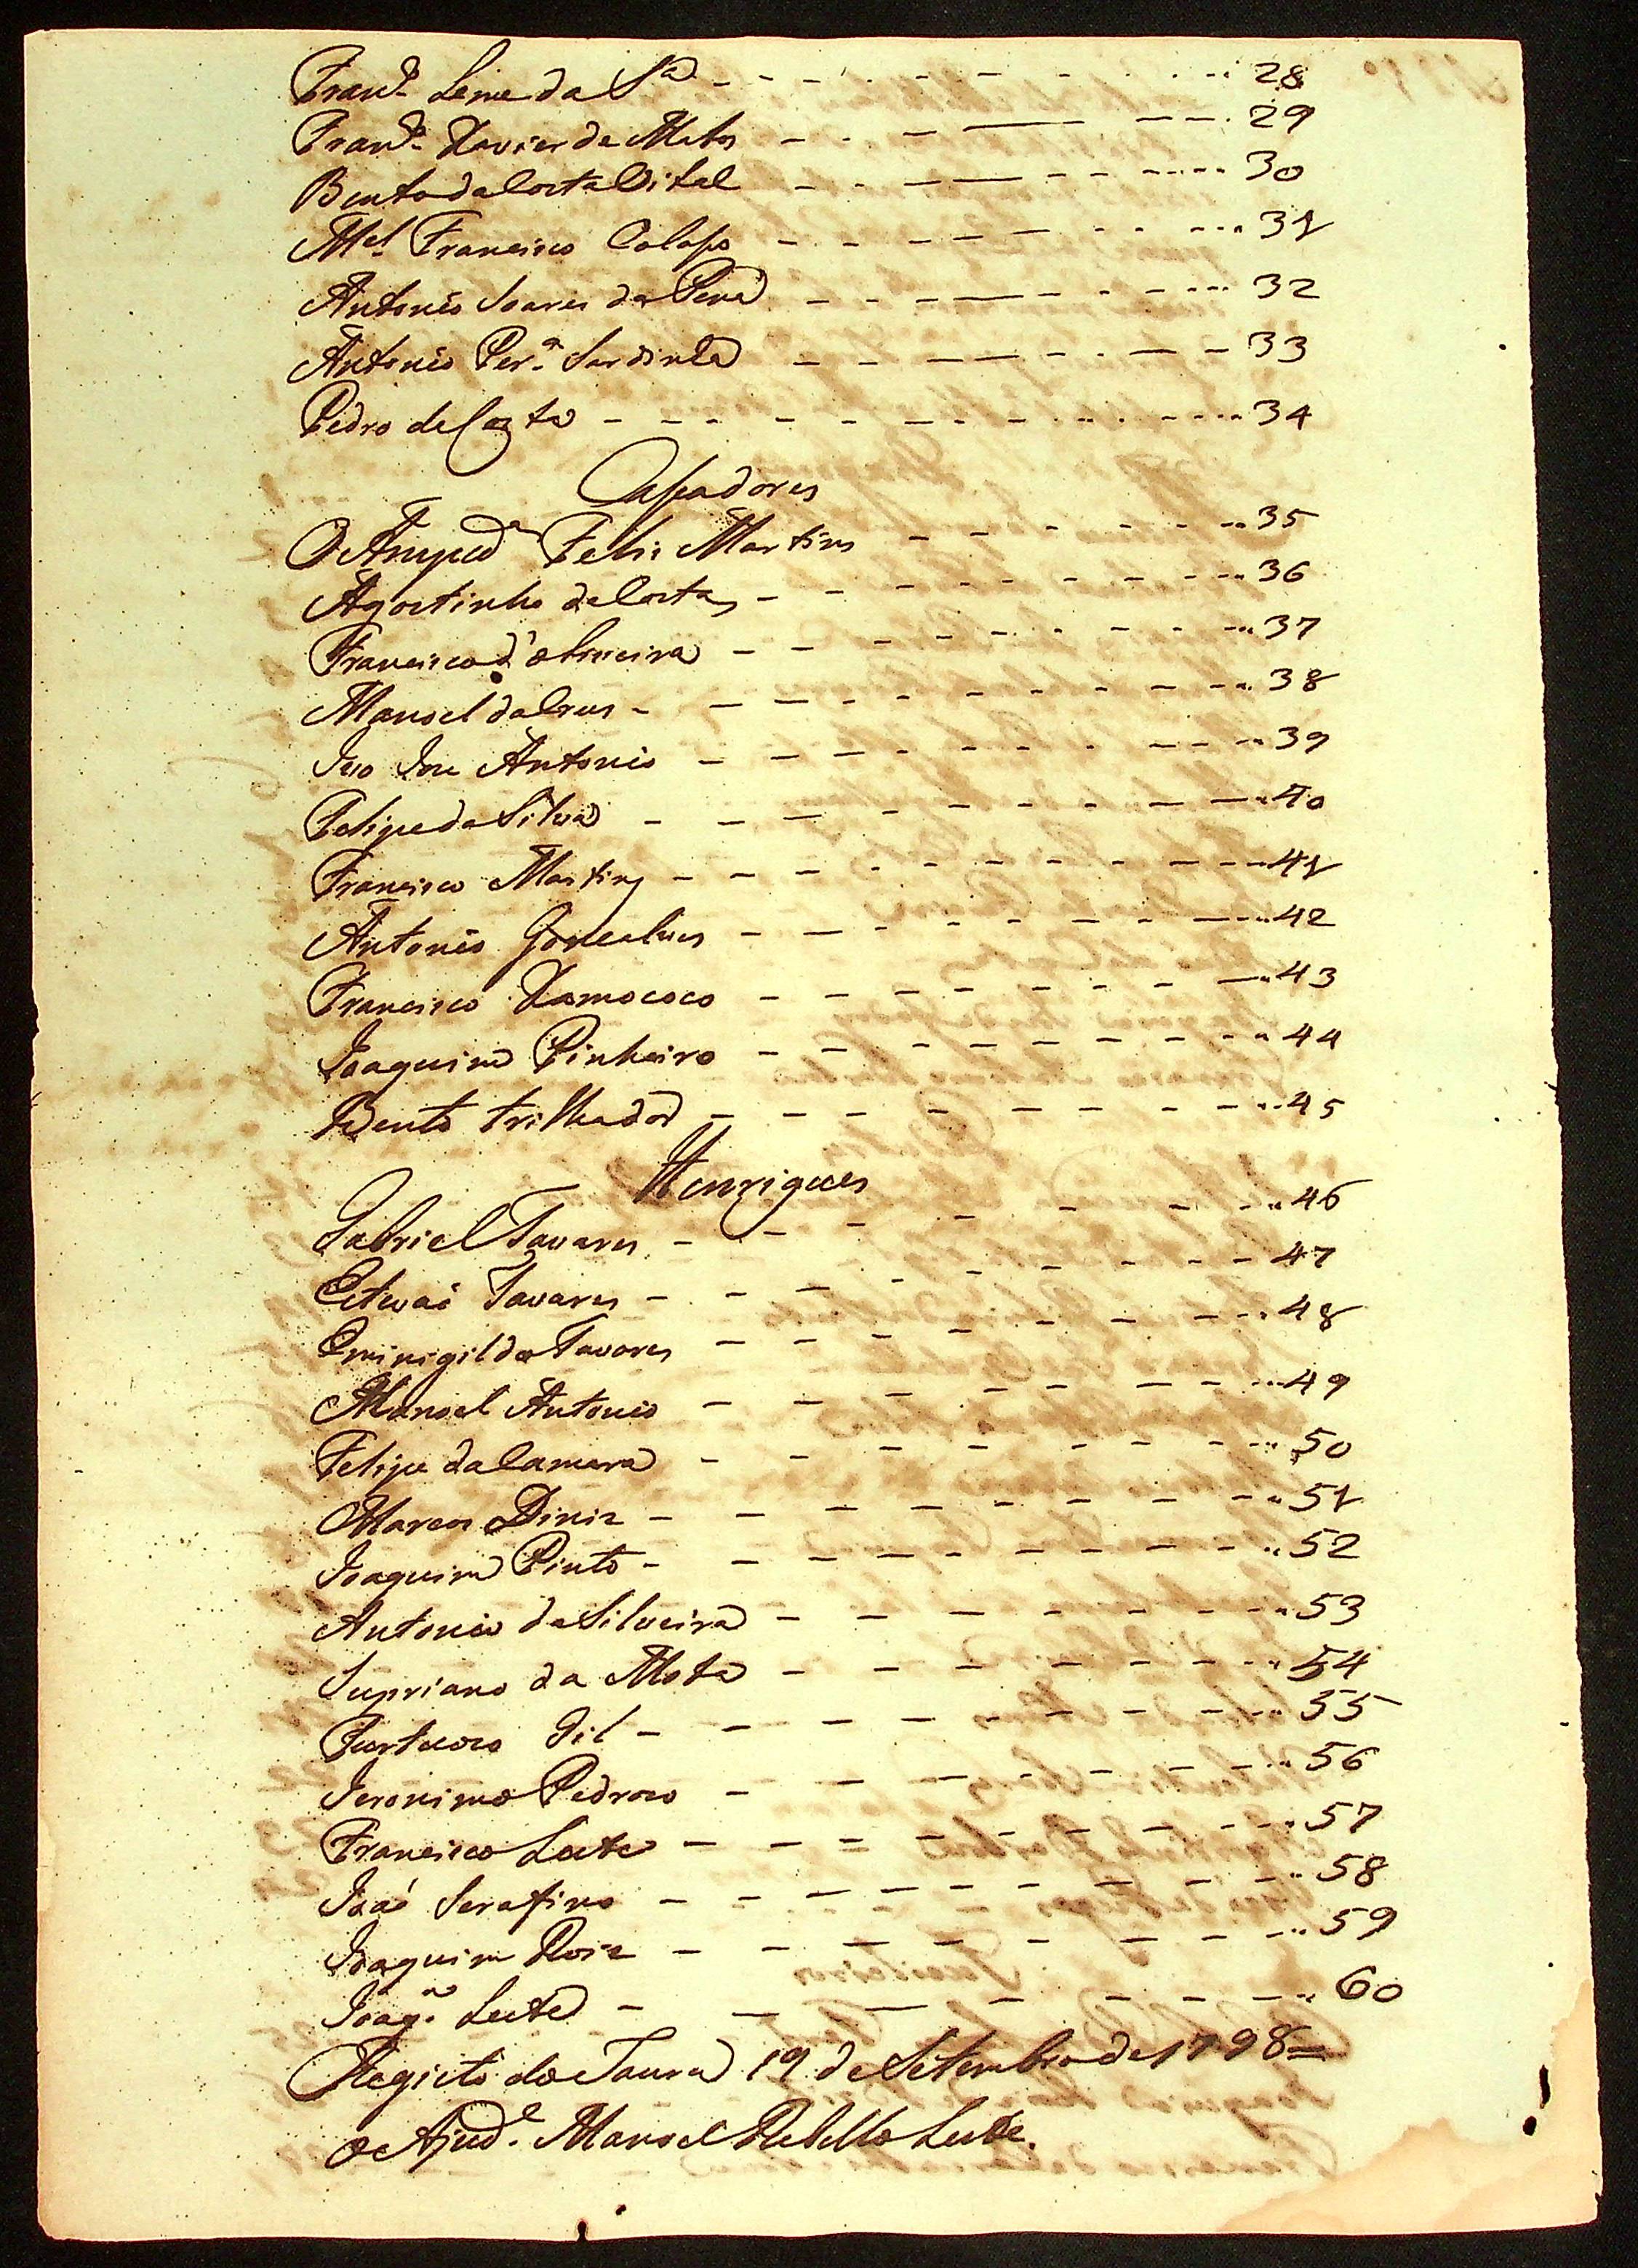 Fran.co Leme da S.a - - - - - - - - 28
Fran.co Xavier de Matos - - - - - - 29
Bento da Costa Vital - - - - - - - 30
M.el Francisco Colaso - - - - - - - 31
Antonio Soares da Pena - - - - - - 32
Antonio Per.a Sardinha - - - - - - 33
Pedro da Costa - - - - - - - - - - 34
Casadores
O Ansped.a Felis Martins - - - - - 35
Agostinho da Costa - - - - - - - - 36
Francisco d'oliveira - - - - - - - 37
Manoel da Crus - - - - - - - - - - 38
Ino Joze Antonio - - - - - - - - - 39
Felipe da Silva - - - - - - - - - - 40
Francisco Martins - - - - - - - - - 41
Antonio Goncalves - - - - - - - - 42
Francisco Xamococo - - - - - - - 43
Joaquim Pinheiro - - - - - - - - - 44
Bento trilhador - - - - - - - - - - 45
Henriques
Gabriel Tavares - - - - - - - - - 46
Estevaõ Tavares - - - - - - - - - 47
Eminigildo Tavares - - - - - - - - 48
Manoel Antonio - - - - - - - - - 49
Felipe da Camara - - - - - - - - 50
Marcos Diniz - - - - - - - - - - 51
Joaquim Pinto - - - - - - - - - - 52
Antonio da Silveira - - - - - - - 53
Supriano da Mota - - - - - - - - 54
Purtuozo Gil - - - - - - - - - - 55
Jeronimo Pedrozo - - - - - - - - 56
Francisco Leite - - - - - - - - - 57
Joaõ Serafino - - - - - - - - - - 58
Joaquim Roiz - - - - - - - - - - 59
Joaq.m Leite - - - - - - - - - - 60
Registo do Jaurú 19 de Setembro de 1798=
o Ajud.e Manoel Rebello Leite.